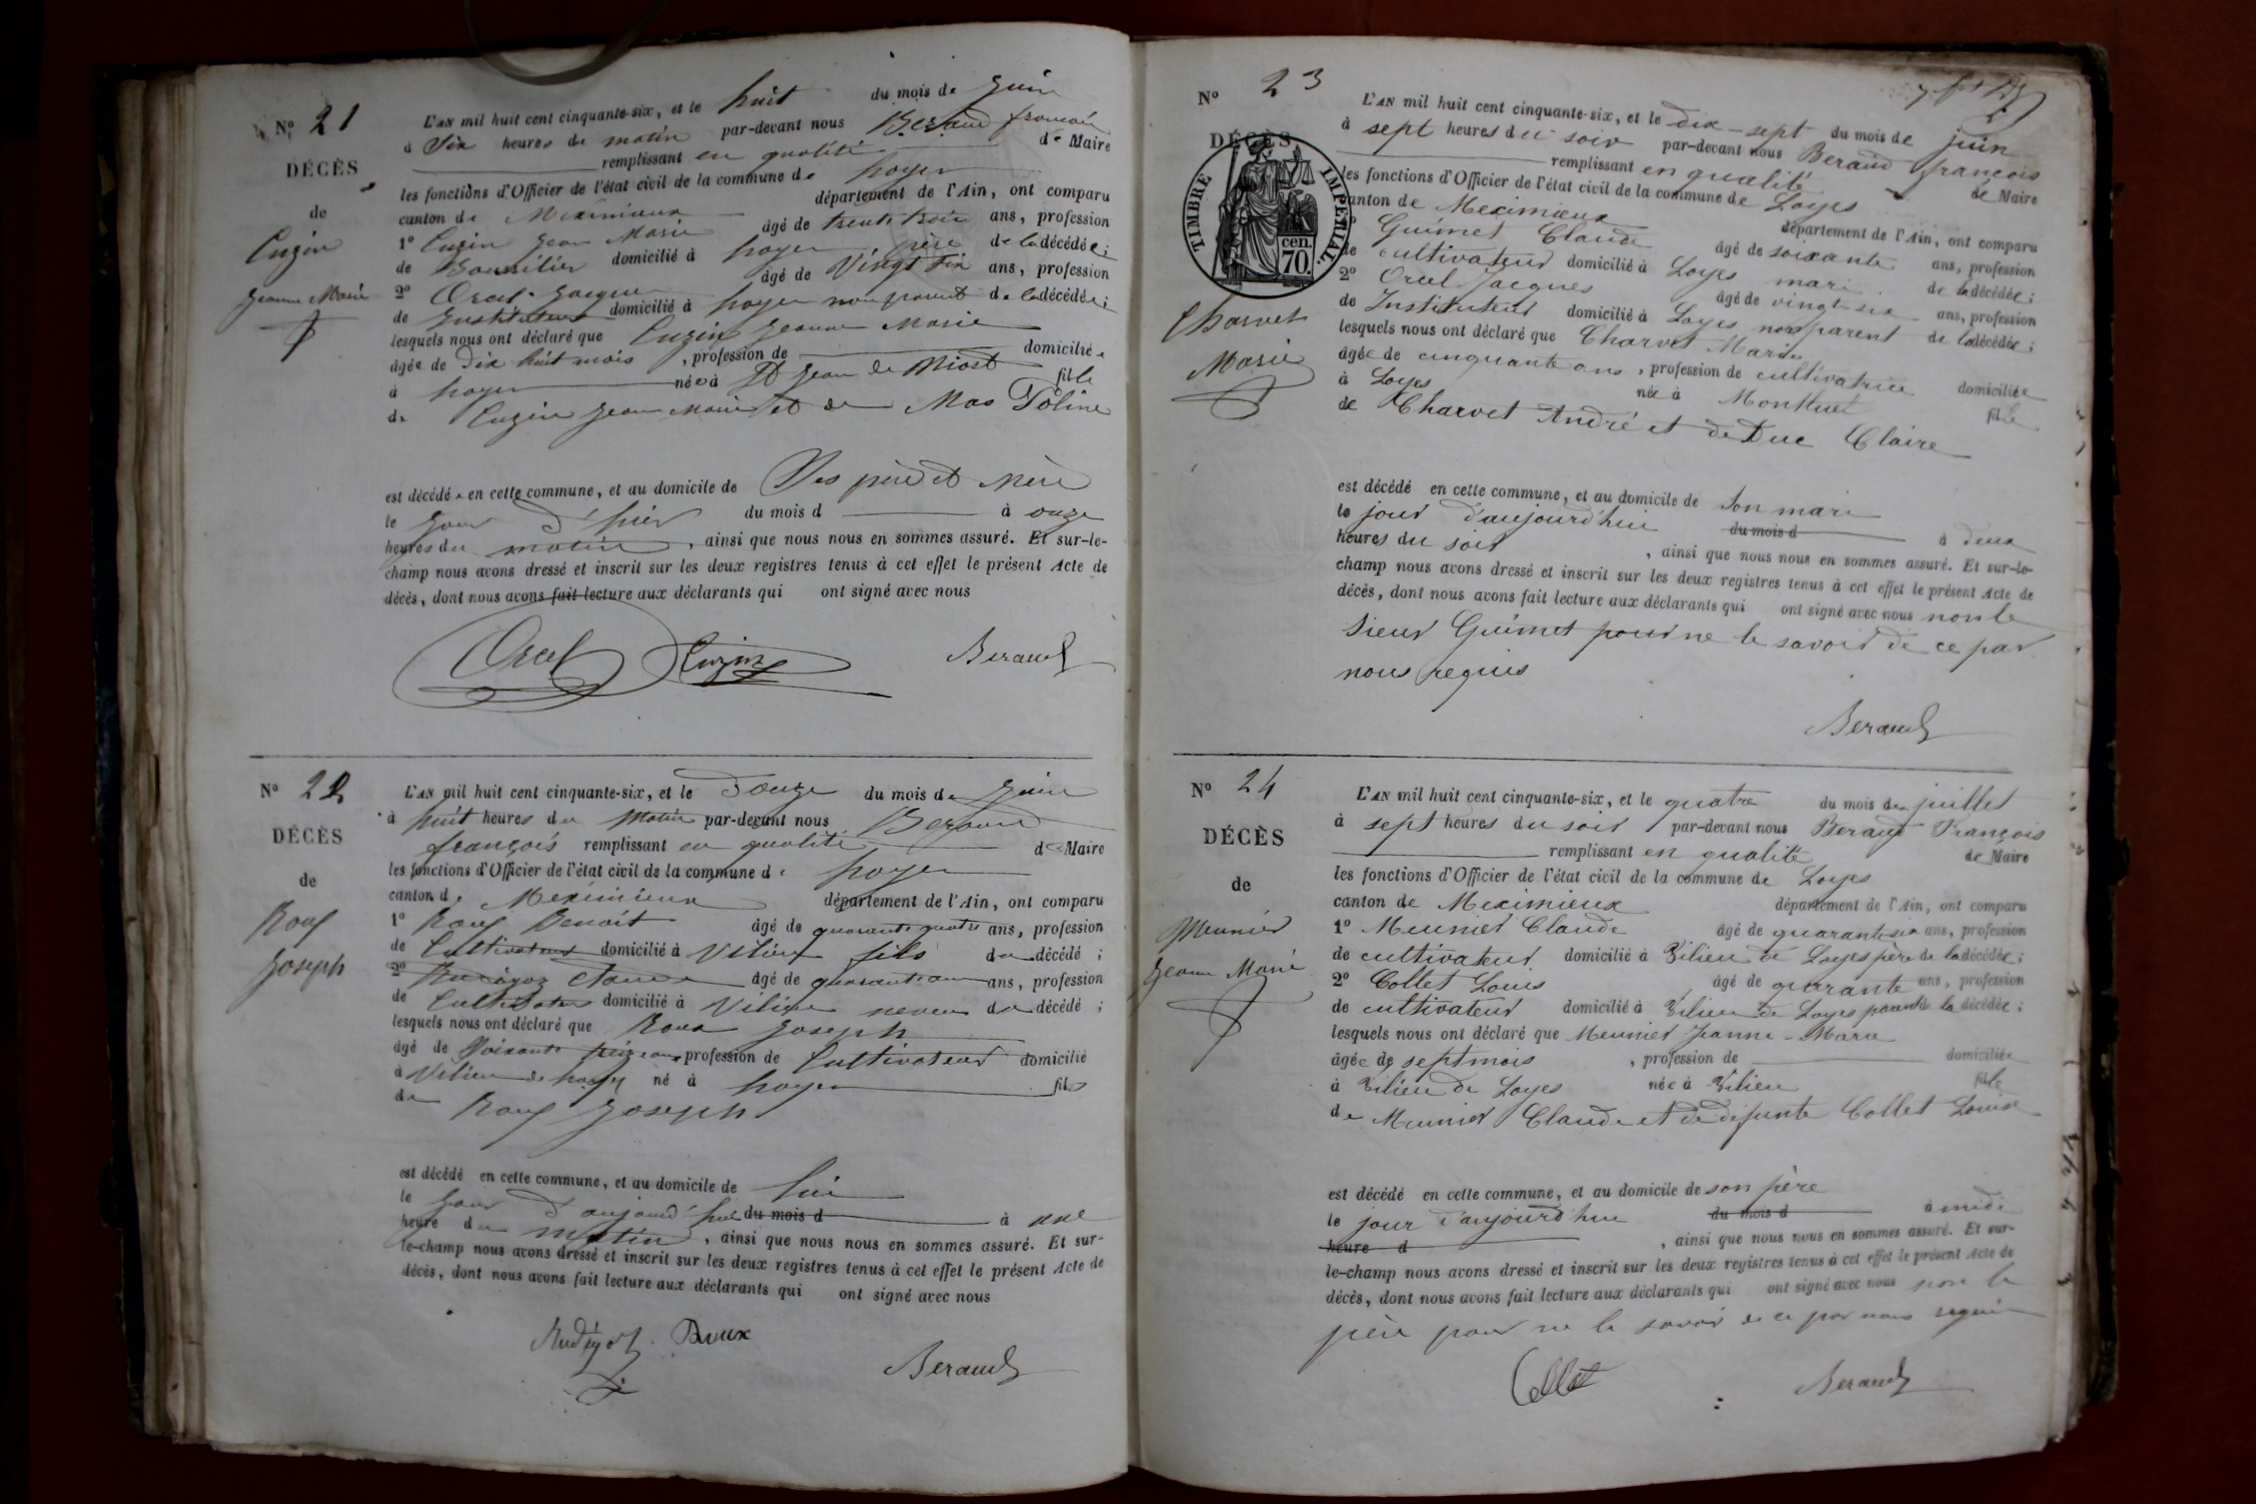 N° 21
DÉCÈS
de
Cuzin
Jeanne Marie
L'AN mil huit cent cinquante-six, et le huit du mois de Juin
à Six heures du matin par-devant nous Beraud françois
remplissant en qualité de Maire
les fonctions d'Officier de l'état civil de la commune de Loyes
canton de Meximieux département de l'Ain, ont comparu
1° Cuzin Jean Marie âgé de trente trois ans, profession
de domicilié à Loyes père de la décédée;
2° Orcel Jacques âgé de Vingt Six ans, profession
de Instituteur domicilié à Loyes non parent de la décédée;
lesquels nous ont déclaré que Cuzin Jeanne Marie
âgée de Dix huit mois, profession de domiciliée
à Loyes née à St Jean de Niost fille
de Cuzin Jean Marie et de Mas Poline
est décédée en cette commune, et au domicile de Ses père et Mère
le Jour d'hier du mois d à onze
heures du matin, ainsi que nous nous en sommes assuré. Et sur-le-
champ nous avons dressé et inscrit sur les deux registres tenus à cet effet le présent Acte de
décès, dont nous avons fait lecture aux déclarants qui ont signé avec nous
Orcel Cuzin Beraud
N° 22
DÉCÈS
de
Roux
Joseph
L'AN mil huit cent cinquante-six, et le Douze du mois de Juin
à huit heures du Matin par-devant nous Beraud
françois remplissant en qualité de Maire
les fonctions d'Officier de l'état civil de la commune de Loyes
canton de Meximieux département de l'Ain, ont comparu
1° Roux Benoit âgé de quarante quatre ans, profession
de Cultivateur domicilié à Vilieu fils du décédé;
2° âgé de quarante ans, profession
de Cultivateur domicilié à Vilieu neveu du décédé;
lesquels nous ont déclaré que Roux Joseph
âgé de Soixante treize ans profession de Cultivateur domicilié
à Vilieu de Loyes né à Loyes fils
de Roux Joseph
est décédé en cette commune, et au domicile de lui
le Jour d'aujourd'hui du mois d à une
heure du matin, ainsi que nous nous en sommes assuré. Et sur-
le-champ nous avons dressé et inscrit sur les deux registres tenus à cet effet le présent Acte de
décès, dont nous avons fait lecture aux déclarants qui ont signé avec nous
Roux
Beraud
N° 23
DÉCÈS
TIMBRE IMPÉRIAL.
cen.
70.
Charvet
Marie
L'AN mil huit cent cinquante-six, et le dix-sept du mois de juin
à sept heures du soir par-devant nous Beraud françois
remplissant en qualité de Maire
les fonctions d'Officier de l'état civil de la commune de Loyes
canton de Meximieux département de l'Ain, ont comparu
1° Guimet Claude âgé de soixante ans, profession
de cultivateur domicilié à Loyes mari de la décédée;
2° Orcel Jacques âgé de vingt-six ans, profession
de Instituteur domicilié à Loyes non parent de la décédée;
lesquels nous ont déclaré que Charvet Marie
âgée de cinquante ans, profession de cultivatrice domiciliée
à Loyes née à Montluel fille
de Charvet André et de Duc Claire
est décédé en cette commune, et au domicile de Son mari
le jour d'aujourd'hui du mois d à deux
heures du soir, ainsi que nous nous en sommes assuré. Et sur-le-
champ nous avons dressé et inscrit sur les deux registres tenus à cet effet le présent Acte de
décès, dont nous avons fait lecture aux déclarants qui ont signé avec nous non le
Sieur Guimet pour ne le savoir de ce par
nous requis
Beraud
N° 24
DÉCÈS
de
Meunier
Jeanne Marie
L'AN mil huit cent cinquante-six, et le quatre du mois de juillet
à sept heures du soir par-devant nous Beraud François
remplissant en qualité de Maire
les fonctions d'Officier de l'état civil de la commune de Loyes
canton de Meximieux département de l'Ain, ont comparu
1° Meunier Claude âgé de quarante six ans, profession
de cultivateur domicilié à Vilieu de Loyes père de la décédée;
2° Collet Louis âgé de quarante ans, profession
de cultivateur domicilié à Vilieu de Loyes parent de la décédée;
lesquels nous ont déclaré que Meunier Jeanne-Marie
âgée de sept mois, profession de domiciliée
à Vilieu de Loyes née à Vilieu fille
de Meunier Claude et de défunte Collet Louise
est décédé en cette commune, et au domicile de son père
le jour d'aujourd'hui du mois d à midi
heure d, ainsi que nous nous en sommes assuré. Et sur-
le-champ nous avons dressé et inscrit sur les deux registres tenus à cet effet le présent Acte de
décès, dont nous avons fait lecture aux déclarants qui ont signé avec nous non le
père pour ne le savoir de ce par nous requis
Collet Beraud